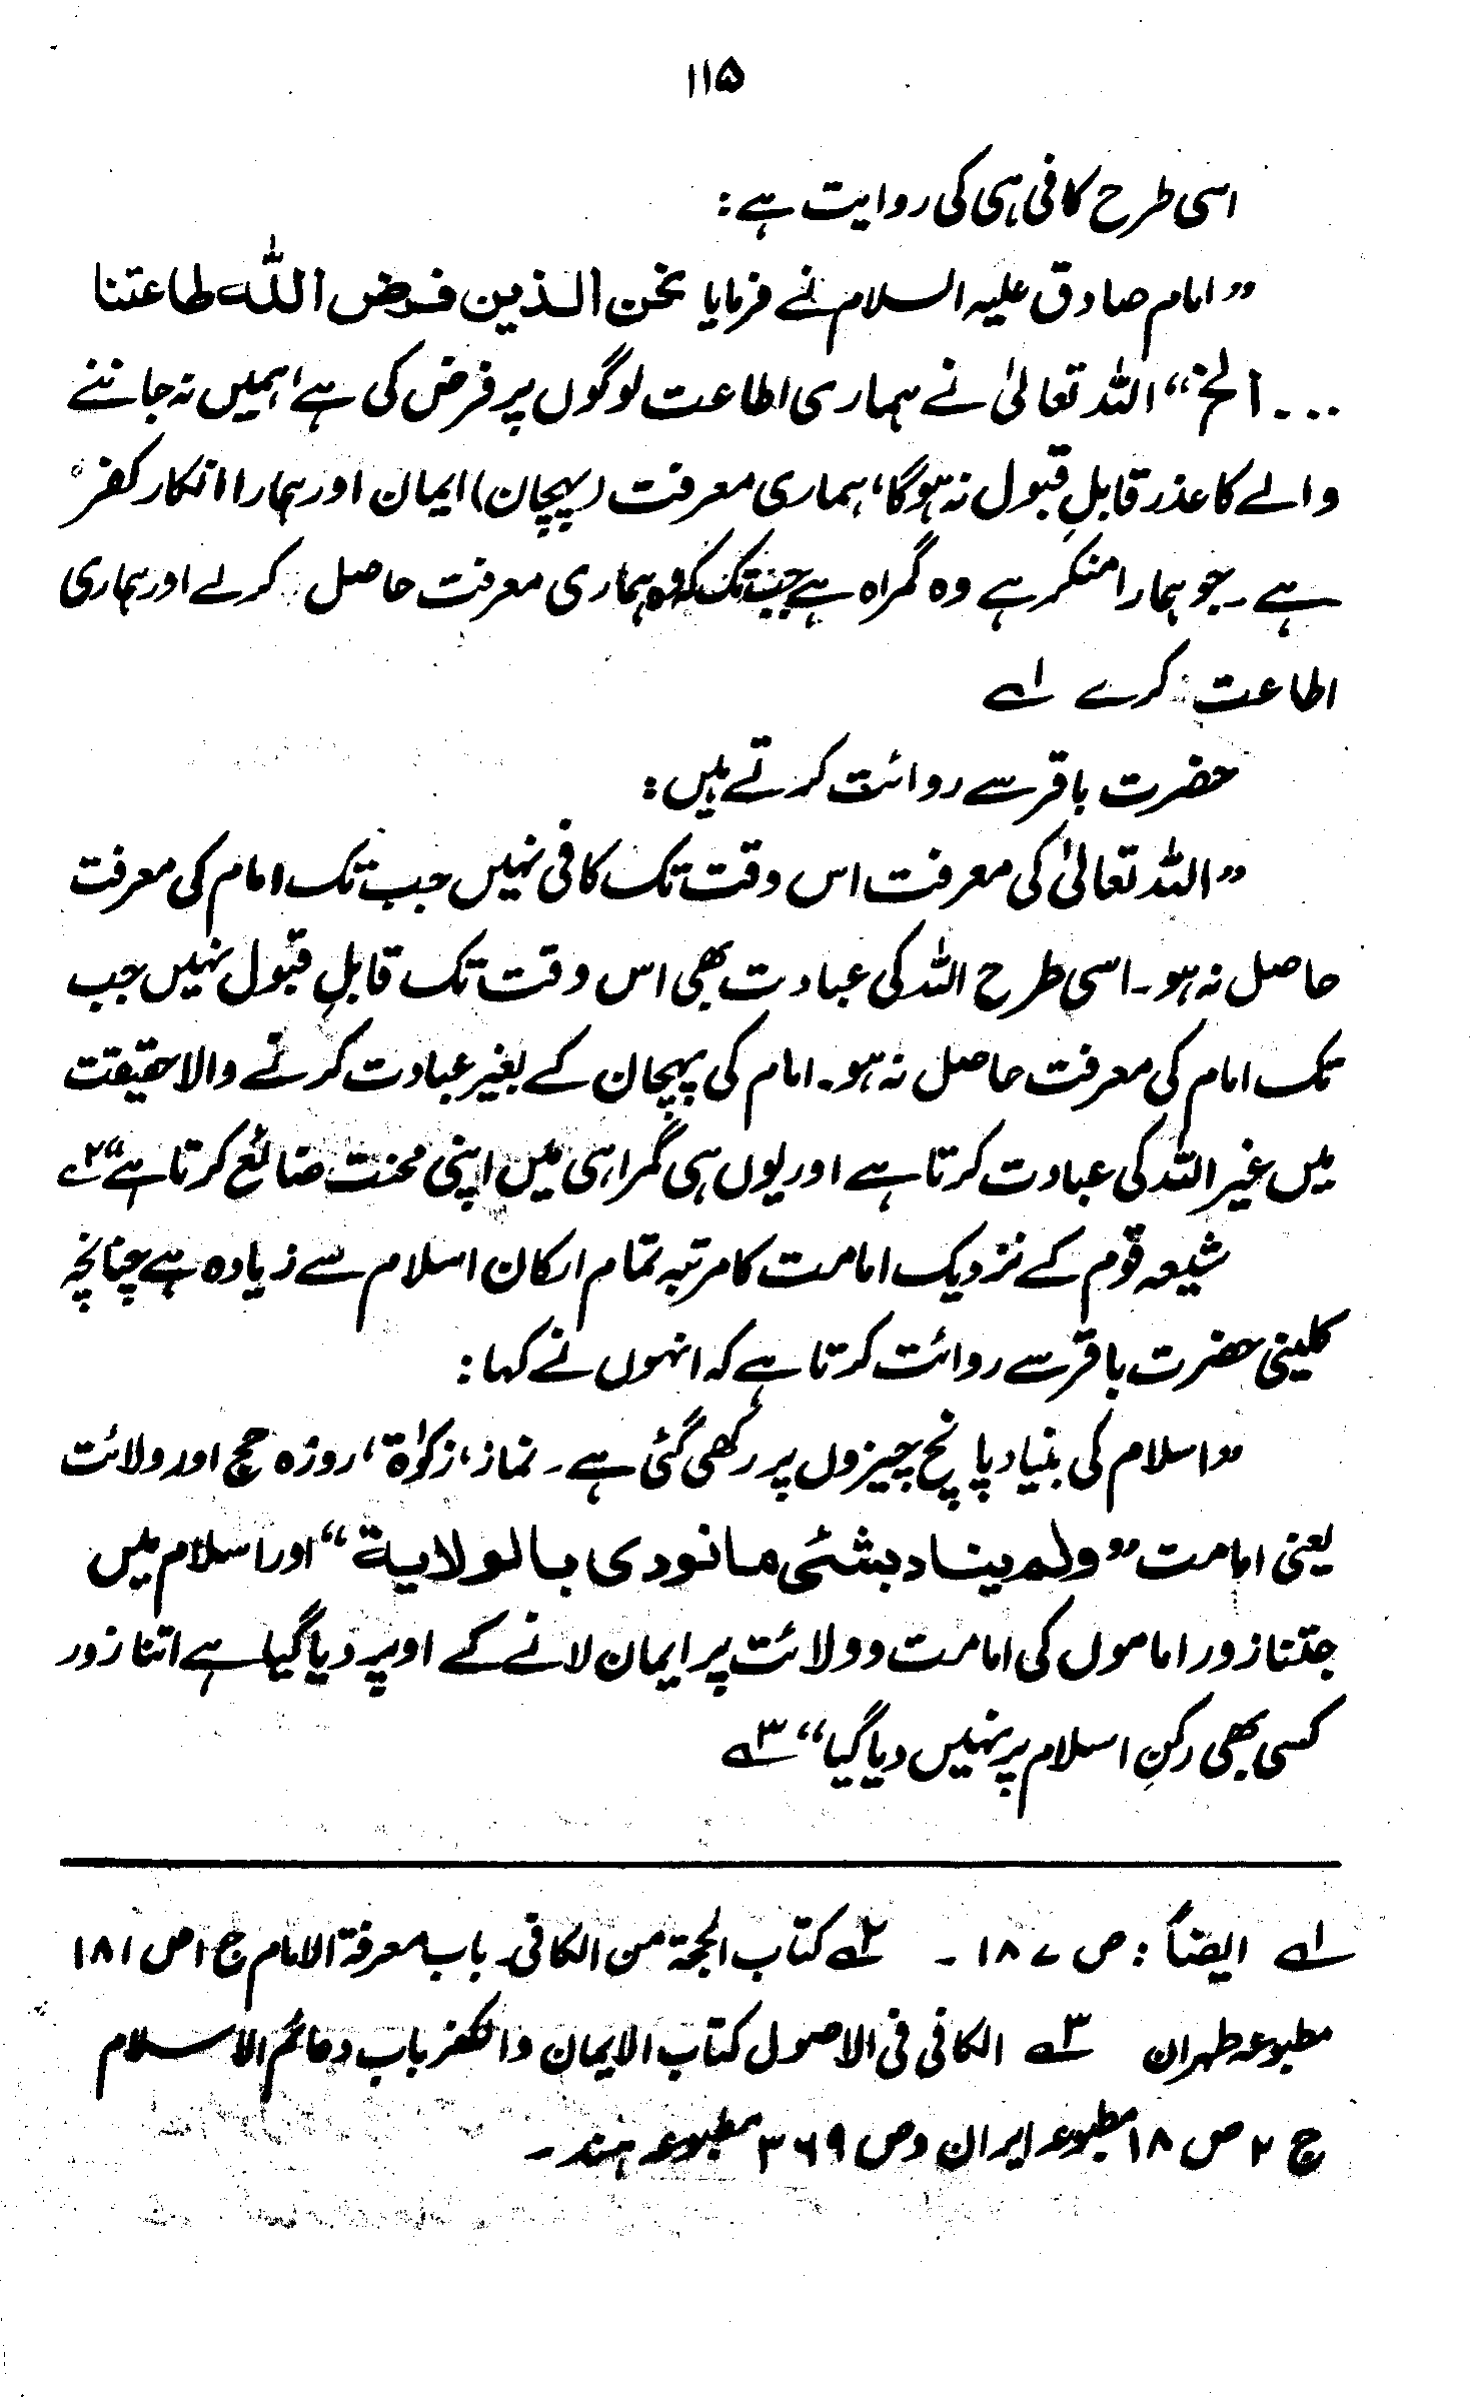 ۱۱۵
اسی طرح کافی ہی کی روایت ہے:
”امام صادق علیہ السلام نے فرمایا نحن الذین فرض اللہ طاعتنا
... الخ“ اللہ تعالیٰ نے ہماری اطاعت لوگوں پر فرض کی ہے، ہمیں نہ جاننے
والے کا عذر قابلِ قبول نہ ہوگا، ہماری معرفت (پہچان) ایمان اور ہمارا انکار کفر
ہے۔ جو ہمارا منکر ہے وہ گمراہ ہے جب تک کہ وہ ہماری معرفت حاصل کرلے اور ہماری
اطاعت کرے ۱؎
حضرت باقر سے روائت کرتے ہیں:
”اللہ تعالیٰ کی معرفت اس وقت تک کافی نہیں جب تک امام کی معرفت
حاصل نہ ہو۔ اسی طرح اللہ کی عبادت بھی اس وقت تک قابلِ قبول نہیں جب
تک امام کی معرفت حاصل نہ ہو۔ امام کی پہچان کے بغیر عبادت کرنے والا حقیقت
میں غیر اللہ کی عبادت کرتا ہے اور یوں ہی گمراہی میں اپنی محنت ضائع کرتا ہے“ ۲؎
شیعہ قوم کے نزدیک امامت کا مرتبہ تمام ارکان اسلام سے زیادہ ہے چنانچہ
کلینی حضرت باقر سے روائت کرتا ہے کہ انہوں نے کہا:
”اسلام کی بنیاد پانچ چیزوں پر رکھی گئی ہے۔ نماز، زکوٰۃ، روزہ حج اور ولائت
یعنی امامت ”ولم یناد بشئی مانودی بالولایة“ اور اسلام میں
جتنا زور اماموں کی امامت و ولائت پر ایمان لانے کے اوپر دیا گیا ہے اتنا زور
کسی بھی رکنِ اسلام پر نہیں دیا گیا“ ۳؎
۱؎ ایضاً: ص ۱۸۷۔ ۲؎ کتاب الحجۃ من الکافی۔ باب معرفۃ الامام ج ۱ ص ۱۸۱
مطبوعہ طہران ۳؎ الکافی فی الاصول کتاب الایمان والکفر باب دعائم الاسلام
ج ۲ ص ۱۸ مطبوعہ ایران و ص ۳۶۹ مطبوعہ ہند۔